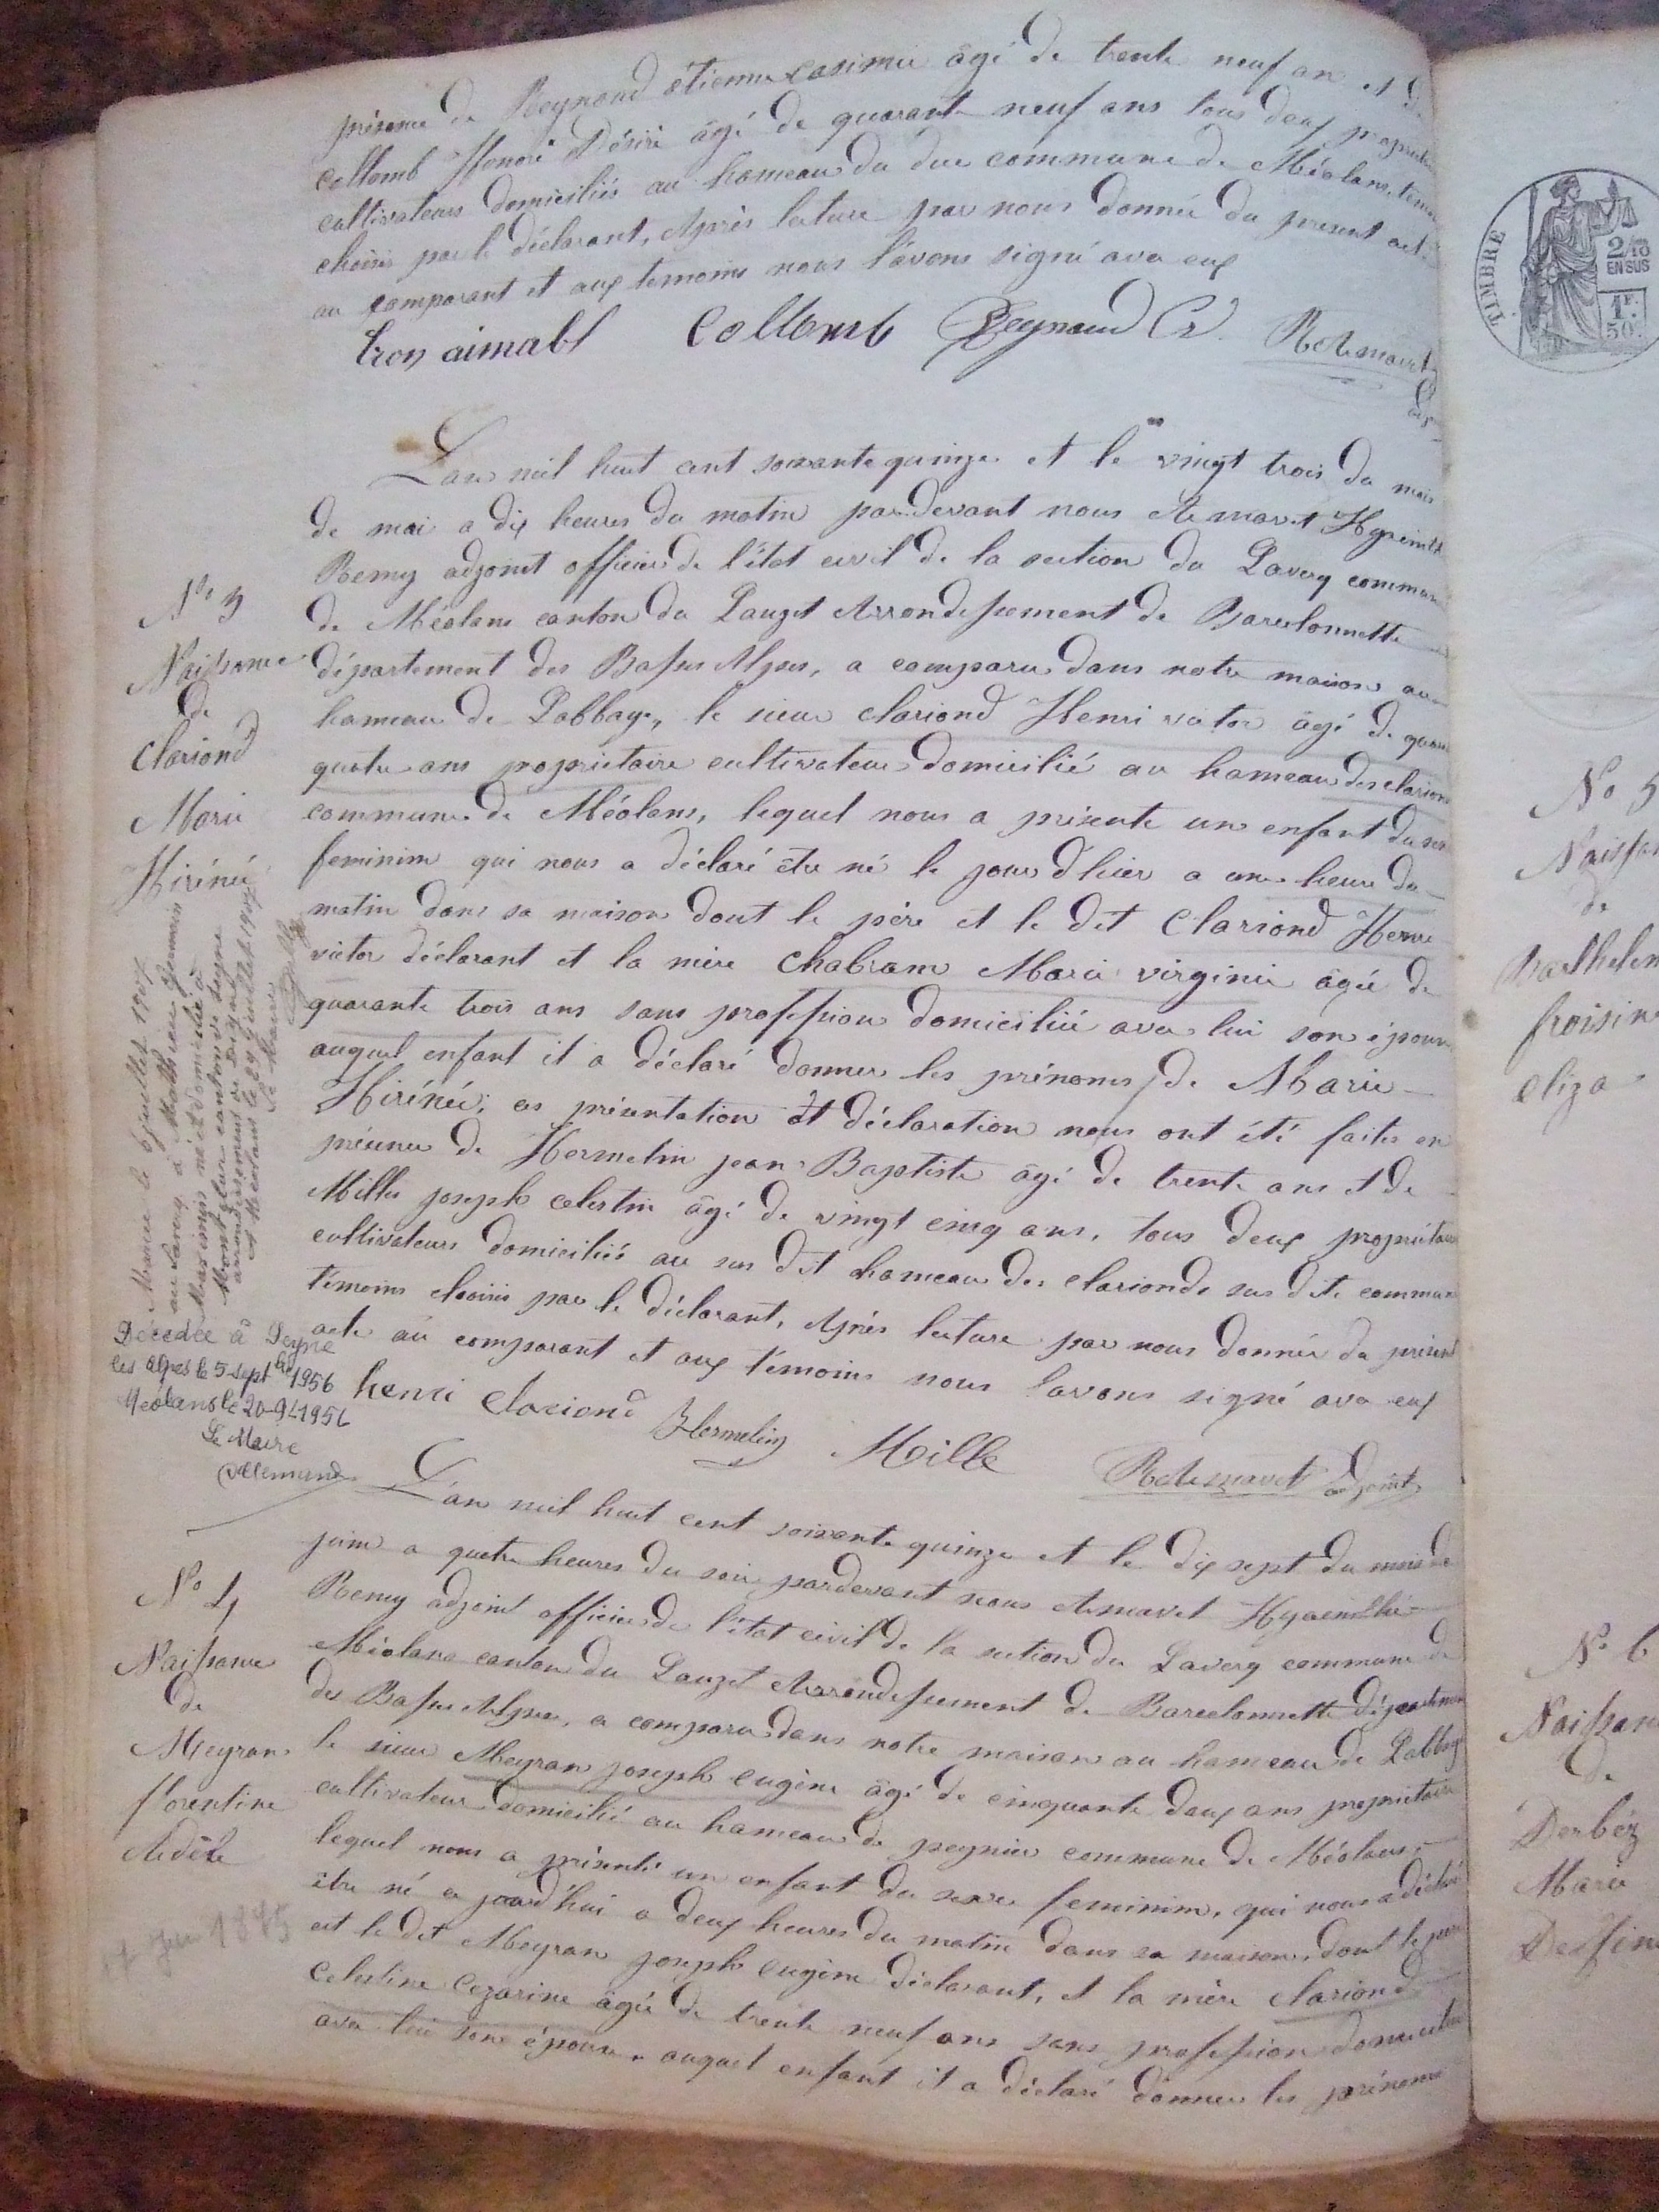 présence de Reynaud étienne casimir âgé de trente neuf an et de
Collomb Honoré Désiré âgé de quarante neuf ans tous deux propriétaire
cultivateurs domiciliés au hameau du duc commune de Méolans, témoin
choisis par le déclarant, Après lecture par nous donnée du present acte
au comparant et aux temoins nous l'avons signé avec eux
tron aimabl Collomb Reynaud Cr.
L'an mil huit cent soixante quinze et le vingt trois du mois
de mai a dix heures du matin pardevant nous
Remy adjoint officier de l'état civil de la section du Laverq commune
de Méolans canton du Lauzet Arrondissement de Barcelonnette
département des Basses Alpes, a comparu dans notre maison au
hameau de Labbaye, le sieur clariond Henri victor âgé de
quatre ans propriétaire cultivateur domicilié au hameau des clarions
commune de Méolans, lequel nous a présenté un enfant du sexe
feminim qui nous a déclaré être né le jour d'hier a une heure du
matin dans sa maison dont le père et le dit Clariond Henri
victor déclarant et la mère Chabran Marie virginie âgée de
quarante trois ans sans profession domiciliée avec lui son épouse
auquel enfant il a déclaré donner les prénoms de Marie
Hirénée; ces présentation et déclaration nous ont été faites en
présence de Hermelin jean Baptiste âgé de trente ans et de
Mille joseph celestin âgé de vingt cinq ans, tous deux propriétaire
cultivateurs domiciliés au sus dit hameau des clarionds sus dite commune
témoins choisis par le déclarant, Après lecture par nous donnée du présent
acte au comparant et aux témoins nous l'avons signé avec eux
henri Clariond Hermelin Mille adjoint
N° 3
Naissance
de
Clariond
Marie
Hirénée
Mariée le 6 juillet 1907
au Laverq à
né et domicilié à
canton de Seyne
arrondissement de
A Meolans le 29 juillet 1907
Le Maire
Décédée à Seyne
les alpes le 5 septbre 1956
Méolans le 20-9-1956
Le Maire
L'an mil huit cent soixante quinze et le dix sept du mois de
juin a quatre heures du soir pardevant nous
Remy adjoint officier de l'état civil de la section du Laverq commune de
Méolans canton du Lauzet Arrondissement de Barcelonnette département
des Basses Alpes, a comparu dans notre maison au hameau de Labbaye
le sieur Meyran joseph eugène âgé de cinquante deux ans propriétaire
cultivateur domicilié au hameau de peynier commune de Méolans,
lequel nous a présenté un enfant du sexe feminim, qui nous a déclaré
être né a jourd'hui a deux heures du matin dans sa maison, dont le père
est le dit Meyran joseph eugène déclarant, et la mère clariond
Celestine Cezarine âgée de trente neuf ans sans profession domiciliée
avec lui son épouse, auquel enfant il a déclaré donner les prénoms
N° 4
Naissance
de
Meyran
florentine
Adèle
17 Juin 1875
TIMBRE
2/10
EN SUS
1F.
50c.
N° 5
de
froisine
eliza
N° 6
Naissance
de
Derbez
Marie